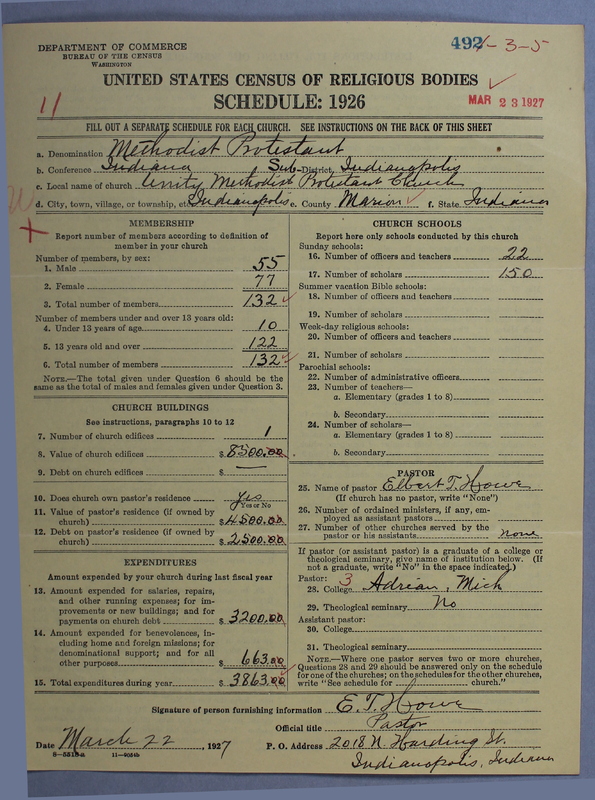 DEPARTMENT OF COMMERCE
BUREAU OF THE CENSUS
WASHINGTON
492-3-5
UNITED STATES CENSUS OF RELIGIOUS BODIES
SCHEDULE: 1926
11
MAR 23 1927
FILL OUT A SEPARATE SCHEDULE FOR EACH CHURCH. SEE INSTRUCTIONS ON THE BACK OF THIS SHEET
a. Denomination Methodist Protestant
b. Conference Indiana Sub-District, Indianapolis
c. Local name of church Trinity Methodist Protestant Church
d. City, town, village, or township, etc. Indianapolis e. County Marion f. State Indiana
MEMBERSHIP
Report number of members according to definition of
member in your church
Number of members, by sex:
1. Male 55
2. Female 77
3. Total number of members 132
Number of members under and over 13 years old:
4. Under 13 years of age 10
5. 13 years old and over 122
6. Total number of members 132
NOTE.—The total given under Question 6 should be the
same as the total of males and females given under Question 3.
CHURCH BUILDINGS
See instructions, paragraphs 10 to 12
7. Number of church edifices 1
8. Value of church edifices $ 8500.00
9. Debt on church edifices $ —
10. Does church own pastor's residence yes
Yes or No
11. Value of pastor's residence (if owned by
church) $4500.00
12. Debt on pastor's residence (if owned by
church) $2500.00
EXPENDITURES
Amount expended by your church during last fiscal year
13. Amount expended for salaries, repairs,
and other running expenses; for im-
provements or new buildings; and for
payments on church debt $ 3200.00
14. Amount expended for benevolences, in-
cluding home and foreign missions; for
denominational support; and for all
other purposes $ 663.00
15. Total expenditures during year $ 3863.00
CHURCH SCHOOLS
Report here only schools conducted by this church
Sunday schools:
16. Number of officers and teachers 22
17. Number of scholars 150
Summer vacation Bible schools:
18. Number of officers and teachers
19. Number of scholars
Week-day religious schools:
20. Number of officers and teachers
21. Number of scholars
Parochial schools:
22. Number of administrative officers
23. Number of teachers—
a. Elementary (grades 1 to 8)
b. Secondary
24. Number of scholars—
a. Elementary (grades 1 to 8)
b. Secondary
PASTOR
25. Name of pastor Elbert T. Howe
(If church has no pastor, write "None")
26. Number of ordained ministers, if any, em-
ployed as assistant pastors
27. Number of other churches served by the
pastor or his assistants none
If pastor (or assistant pastor) is a graduate of a college or
theological seminary, give name of institution below. (If
not a graduate, write "No" in the space indicated.)
Pastor: 3
28. College Adrian, Mich
29. Theological seminary No
Assistant pastor:
30. College
31. Theological seminary
NOTE.—Where one pastor serves two or more churches,
Questions 28 and 29 should be answered only on the schedule
for one of the churches; on the schedules for the other churches,
write "See schedule for church."
Signature of person furnishing information E. T. Howe
Official title Pastor
Date March 22, 1927 P. O. Address 2018 N. Harding St.
Indianapolis, Indiana